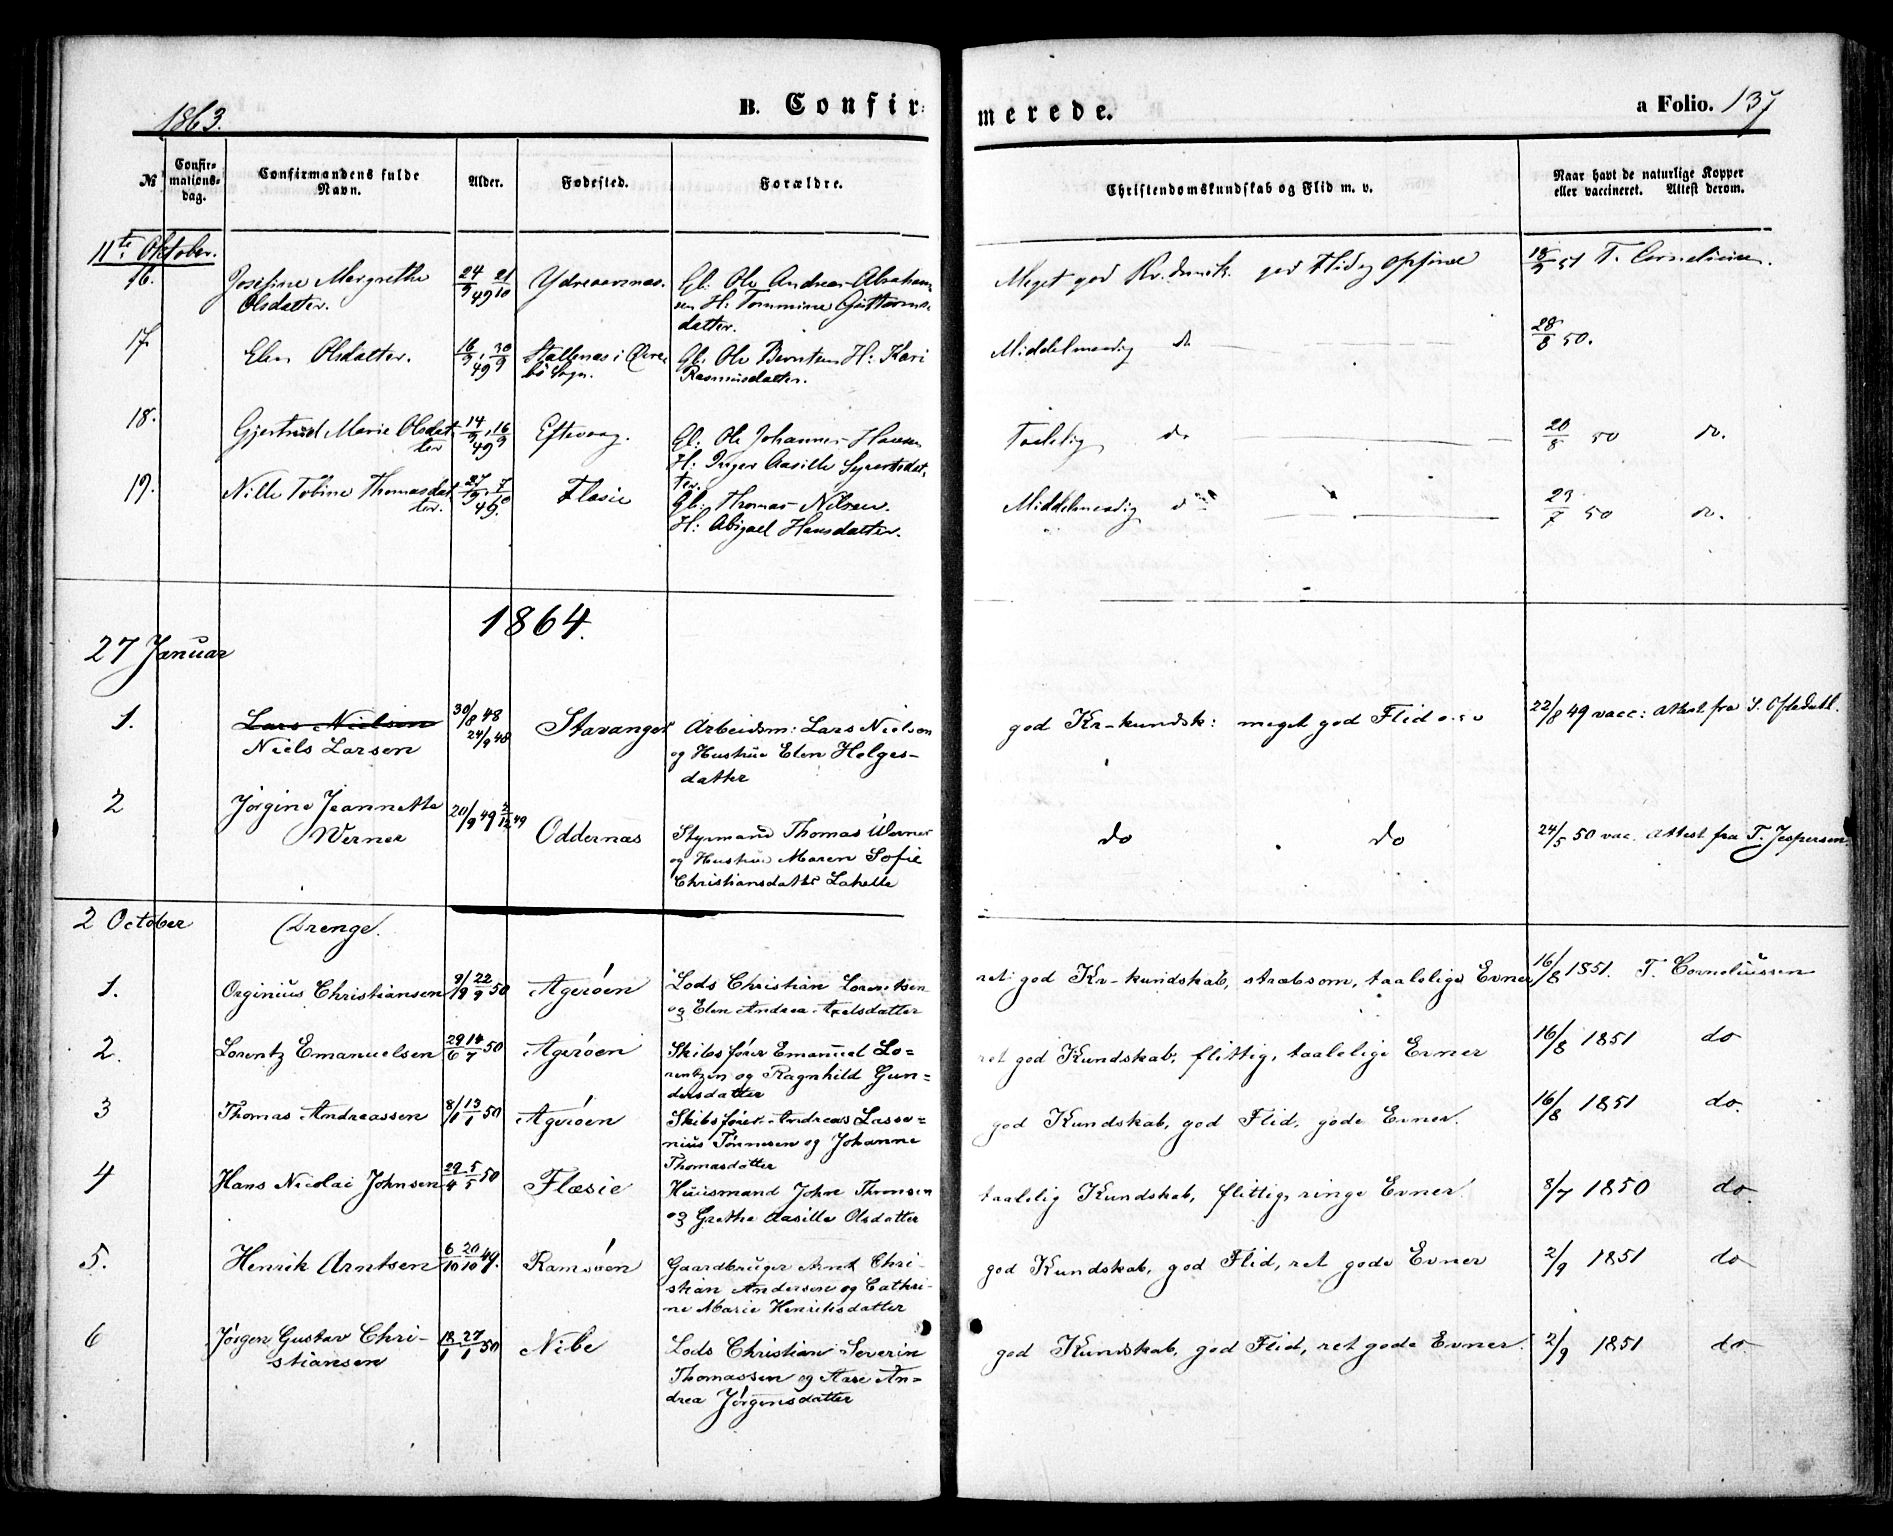 1863.
B. Confir-
merede.
a Folio. 137
№
Confir-
mations-
dag.
Confirmandens fulde
Navn.
Alder.
Fødested.
Forældre.
Christendomskundskab og Flid m. v.
Naar havt de naturlige Kopper
eller vaccineret. Attest derom.
11te Oktober.
16.
Josefine Margrethe
Olsdatter.
24/9 49 21/10
Ydreaarsnæs.
Gl: Ole Andreas Abraham-
sen H: Tommine Guttorms-
datter.
Meget god god Flid og Opførsel
18/9 51 T. Corneliussen.
17.
Elen Olsdatter.
16/9 49 30/9
Gl: Ole Berntsen H: Kari
Rasmusdatter.
Middelmaadig do
28/8 50.
18.
Gjertrud Marie Olsdat-
ter
14/9 49 16/9
Eftevaag.
Gl: Ole Johannes Hansen
H: Inger Aasille Syvertsdat-
ter.
Taalelig do
20/8 50 do.
19.
Nille Tobine Thomasdat-
ter.
27/9 49 7/10
Flasie
Gl: Thomas Nilsen.
H: Abigael Hansdatter.
Middelmaadig do
23/7 50 do.
1864.
27 Januar
1.
Lars Nielsen
Niels Larsen
30/8 48
24/9 48
Stavanger
Arbeidsm: Lars Nielsen
og Hustrue Elen Helges-
datter
god Kr-kundsk: meget god Flid o.s.v
22/8 49 vacc: Attest fra S. Oftedahl.
2
Jörgine Jeannette
Werner
20/9 49 2/12 49
Oddernæs
Styrmand Thomas Werner
og Hustrue Maren Sofie
Christiansdatter Lahelle
do do
24/5 50 vac. Attest fra T. Jespersen
2 October
Drenge.
1.
Orginius Christiansen
9/9 22/9 50
Ageröen
Lods Christian Lorentsen
og Elen Andrea Axelsdatter
ret god Kr-kundskab, stræbsom, taalelige Evner
16/8 1851. T. Corneliussen
2.
Lorentz Emanuelsen
29/6 14/7 50
Ageröen
Skibsfører Emanuel Lo-
rentzen og Ragnhild Gun-
dersdatter
ret god Kundskab, flittig, taalelige Evner
16/8 1851 do
3
Thomas Andreassen
8/1 13/1 50
Ageröen
Skibsfører Andreas Lasse-
nius Tönnesen og Johanne
Thomasdatter
god Kundskab, god Flid, gode Evner.
16/8 1851 do.
4
Hans Nicolai Johnsen
29/4 5/5 50
Flæsie
Huusmand John Thomsen
og Grethe Aasille Olsdatter
taalelig Kundskab, flittig, ringe Evner.
8/7 1850 do
5.
Henrik Arntsen
6/10 20/10 49.
Ramsöen
Gaardbruger Arnt Chri-
stian Andersen og Cathri-
ne Marie Henriksdatter
god Kundskab, god Flid, ret gode Evner
2/9 1851 do
6
Jörgen Gustav Chri-
stiansen
18/1 27/1 50
Nibe
Lods Christian Severin
Thomassen og Aase An-
drea Jörgensdatter
god Kundskab, god Flid, ret gode Evner.
2/9 1851 do